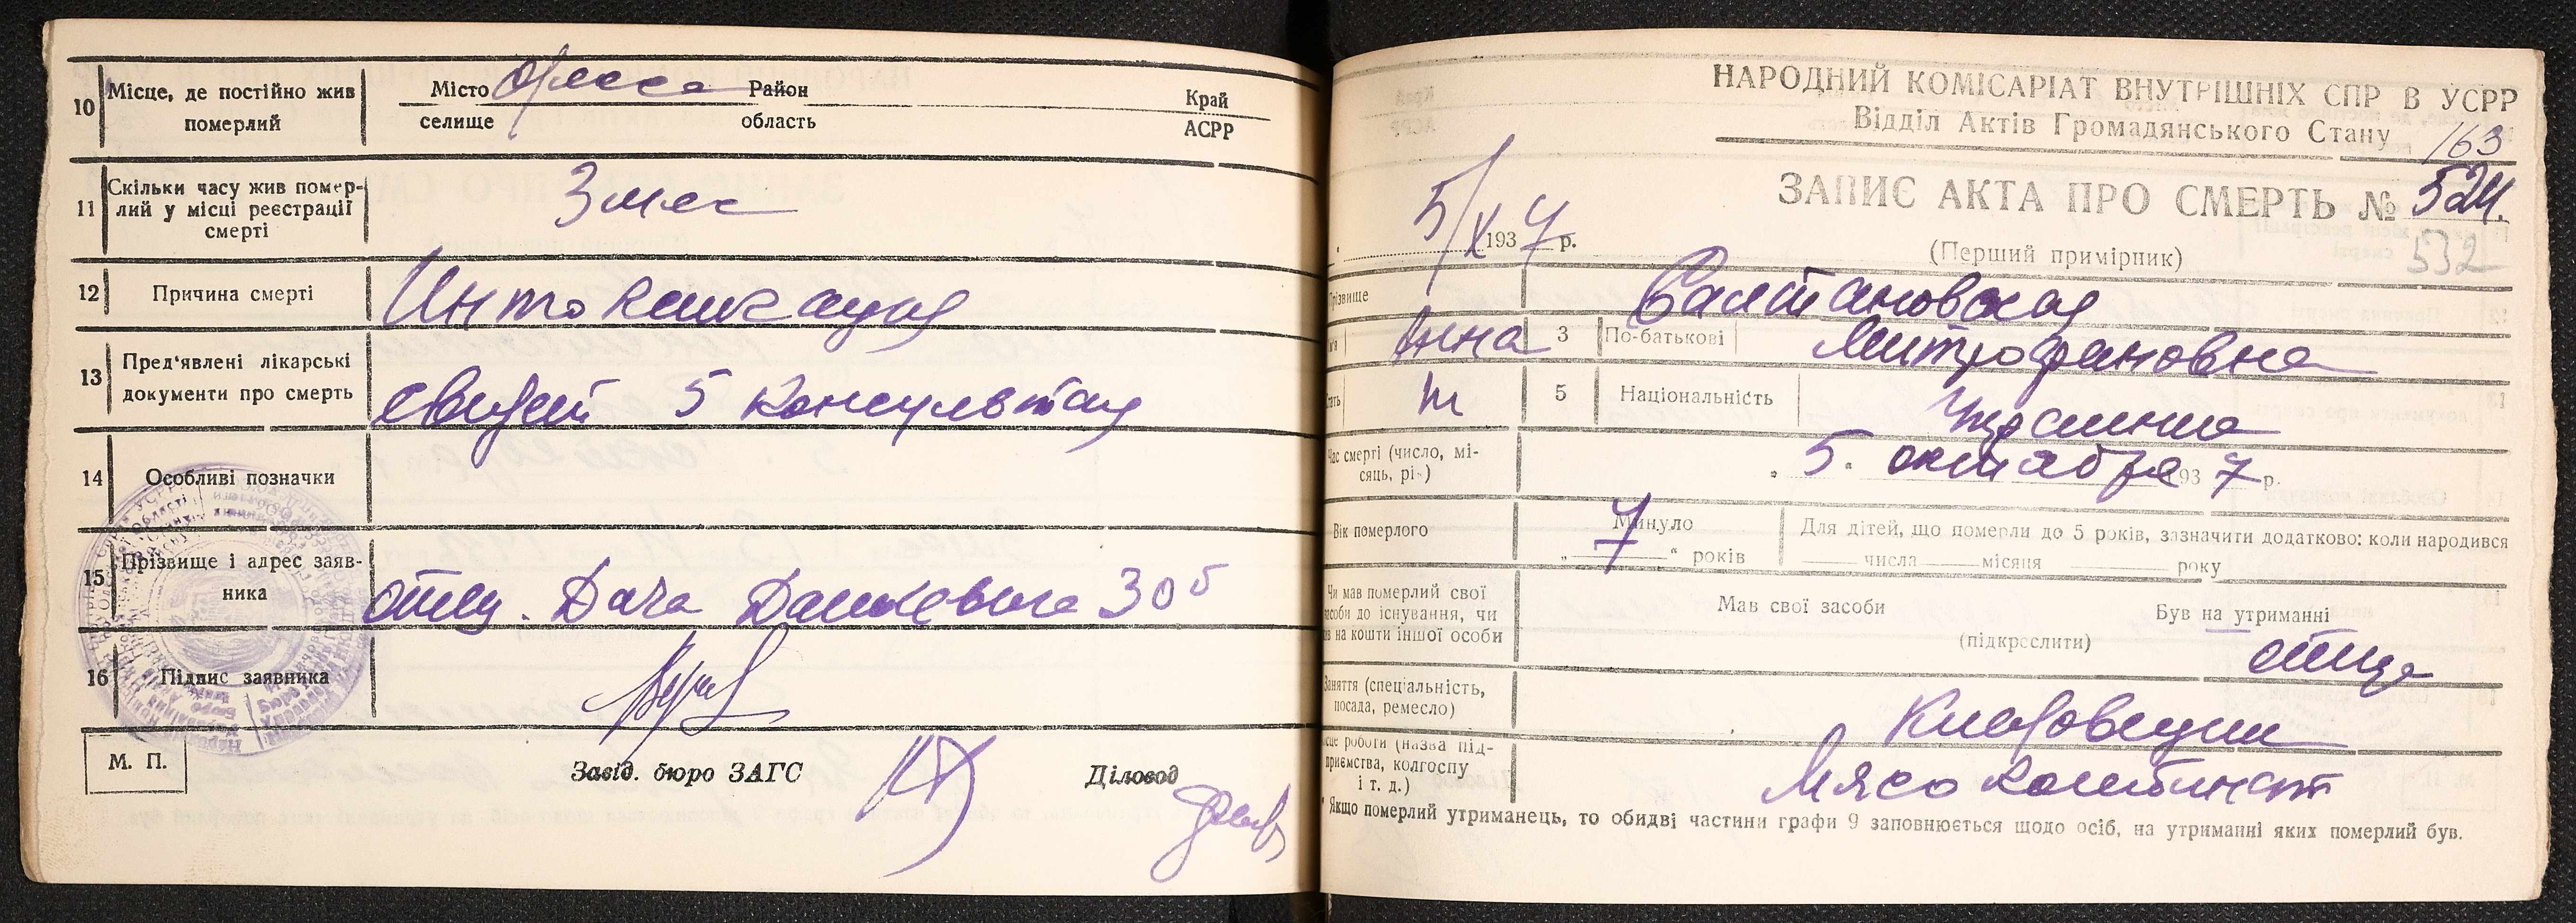 10 Місце, де постійно жив померлий
Місто Одесса Район Край
селище область АСРР
11 Скільки часу жив помер-
лий у місці реєстрації
смерті
3 мес
12 Причина смерті Интоксикация
13 Пред'явлені лікарські
документи про смерть
свидет 5 консультац
14 Особливі позначки
15 Прізвище і адрес заяв-
ника
отец. Дача 30б
16 Підпис заявника
М. П. Завід. бюро ЗАГС Діловод
НАРОДНИЙ КОМІСАРІАТ ВНУТРІШНІХ СПР В УСРР
Відділ Актів Громадянського Стану
163
ЗАПИС АКТА ПРО СМЕРТЬ № 524.
5/X 1937 р.
(Перший примірник)
532
Прізвище Салтановская
Анна 3 По-батькові Митрофановна
ж 5 Національність Украинка
Час смерті (число, мі-
сяць, рік)
„ 5 " октября 1937 р.
Вік померлого
Минуло
„ 7 " років
Для дітей, що померли до 5 років, зазначити додатково: коли народився
числа місяця року
Чи мав померлий свої
засоби до існування, чи
був на кошти іншої особи
Мав свої засоби Був на утриманні
(підкреслити)
отца
Заняття (спеціальність,
посада, ремесло)
Кладовщик
Місце роботи (назва під-
приємства, колгоспу
і т. д.)
Мясокомбинат
* Якщо померлий утриманець, то обидві частини графи 9 заповнюється щодо осіб, на утриманні яких померлий був.